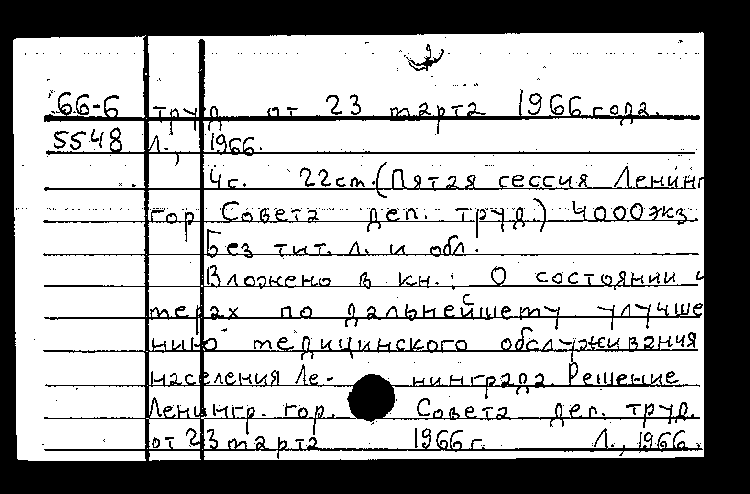 66-6 труд от 23 марта 1966 года.
5548 Л., 1966.
4с. 22см. (Пятая сессия Ленинг
гор Совета деп. труд.) 4000экз.
Без тит. л. и обл.
Вложено в кн.: О состоянии и
мерах по дальнейшему улучше
нию медицинского обслуживания
населения Ле- нинграда. Решение
Ленингр. гор. Совета деп. труд.
от 23 марта 1966г. Л., 1966.